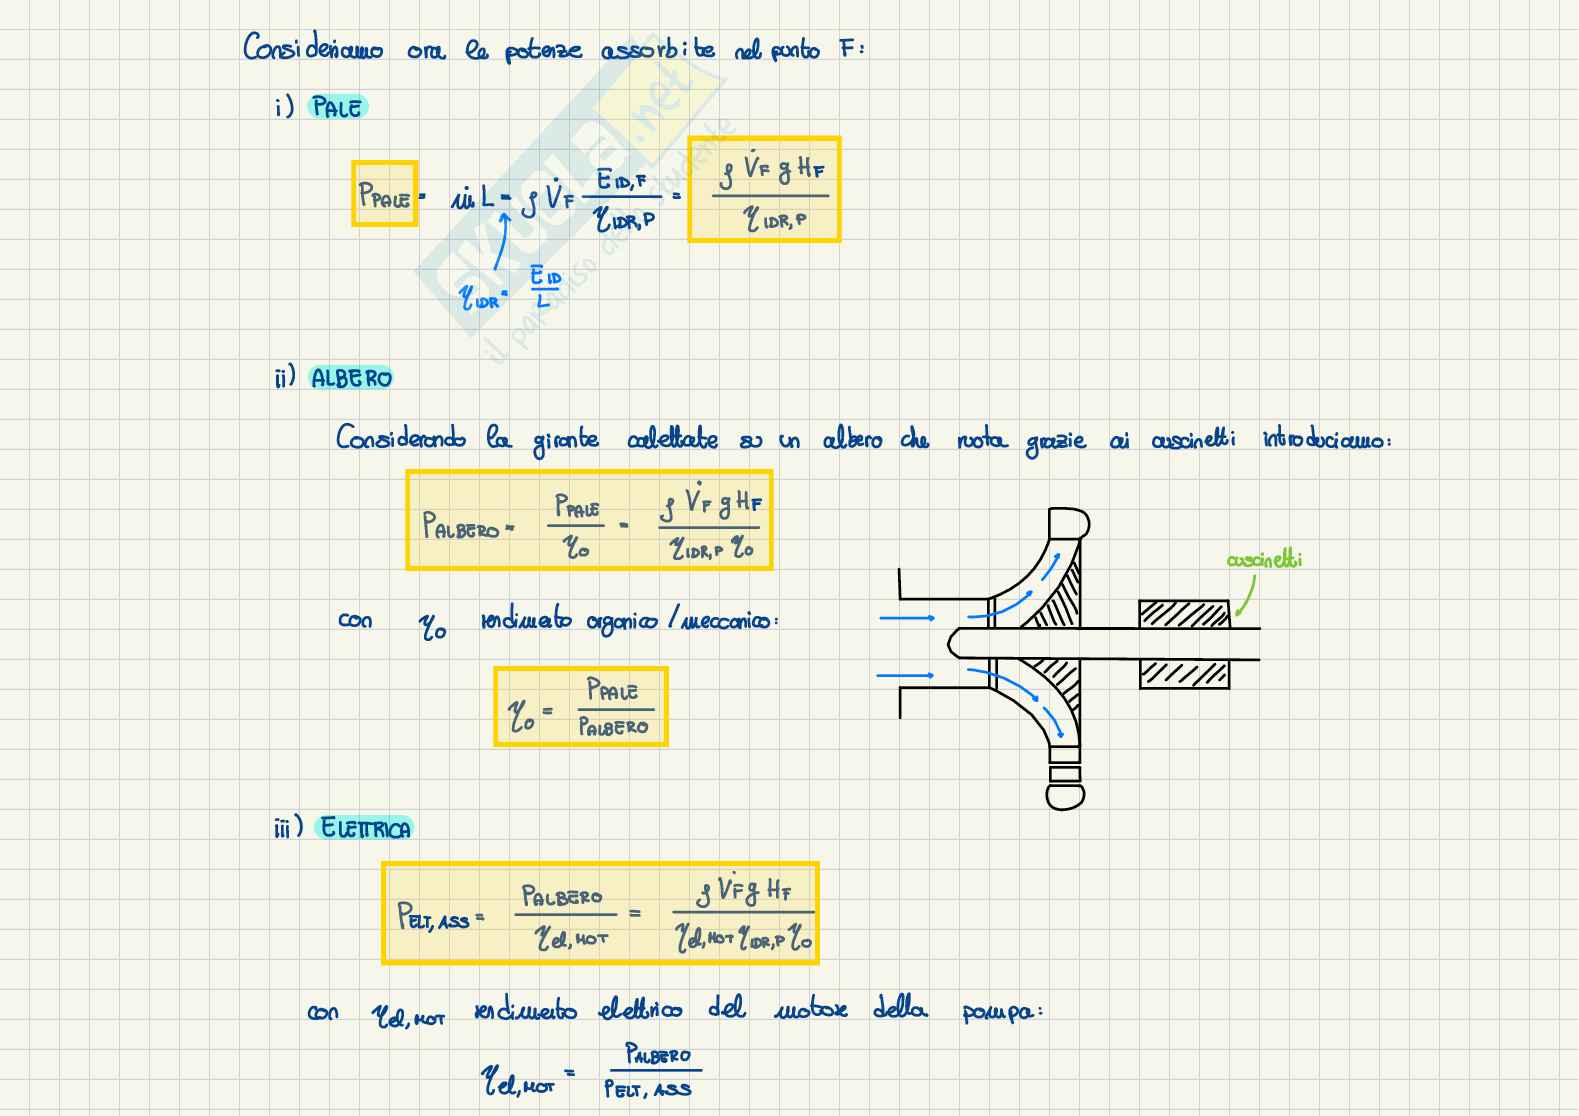 Consideriamo ora le potenze assorbite nel punto F:
i) PALE
P_PALE = ṁ L = ρ V̇_F E_ID,F / η_IDR,P = ρ V̇_F g H_F / η_IDR,P
η_IDR = E_ID / L
SKUOLA.net
il paradiso dello studente
ii) ALBERO
Considerando la girante calettate su un albero che ruota grazie ai cuscinetti introduciamo:
P_ALBERO = P_PALE / η_o = ρ V̇_F g H_F / η_IDR,P η_o
cuscinetti
con η_o rendimento organico/meccanico:
η_o = P_PALE / P_ALBERO
iii) ELETTRICA
P_ELT,ASS = P_ALBERO / η_el,MOT = ρ V̇_F g H_F / η_el,MOT η_IDR,P η_o
con η_el,MOT rendimento elettrico del motore della pompa:
η_el,MOT = P_ALBERO / P_ELT,ASS